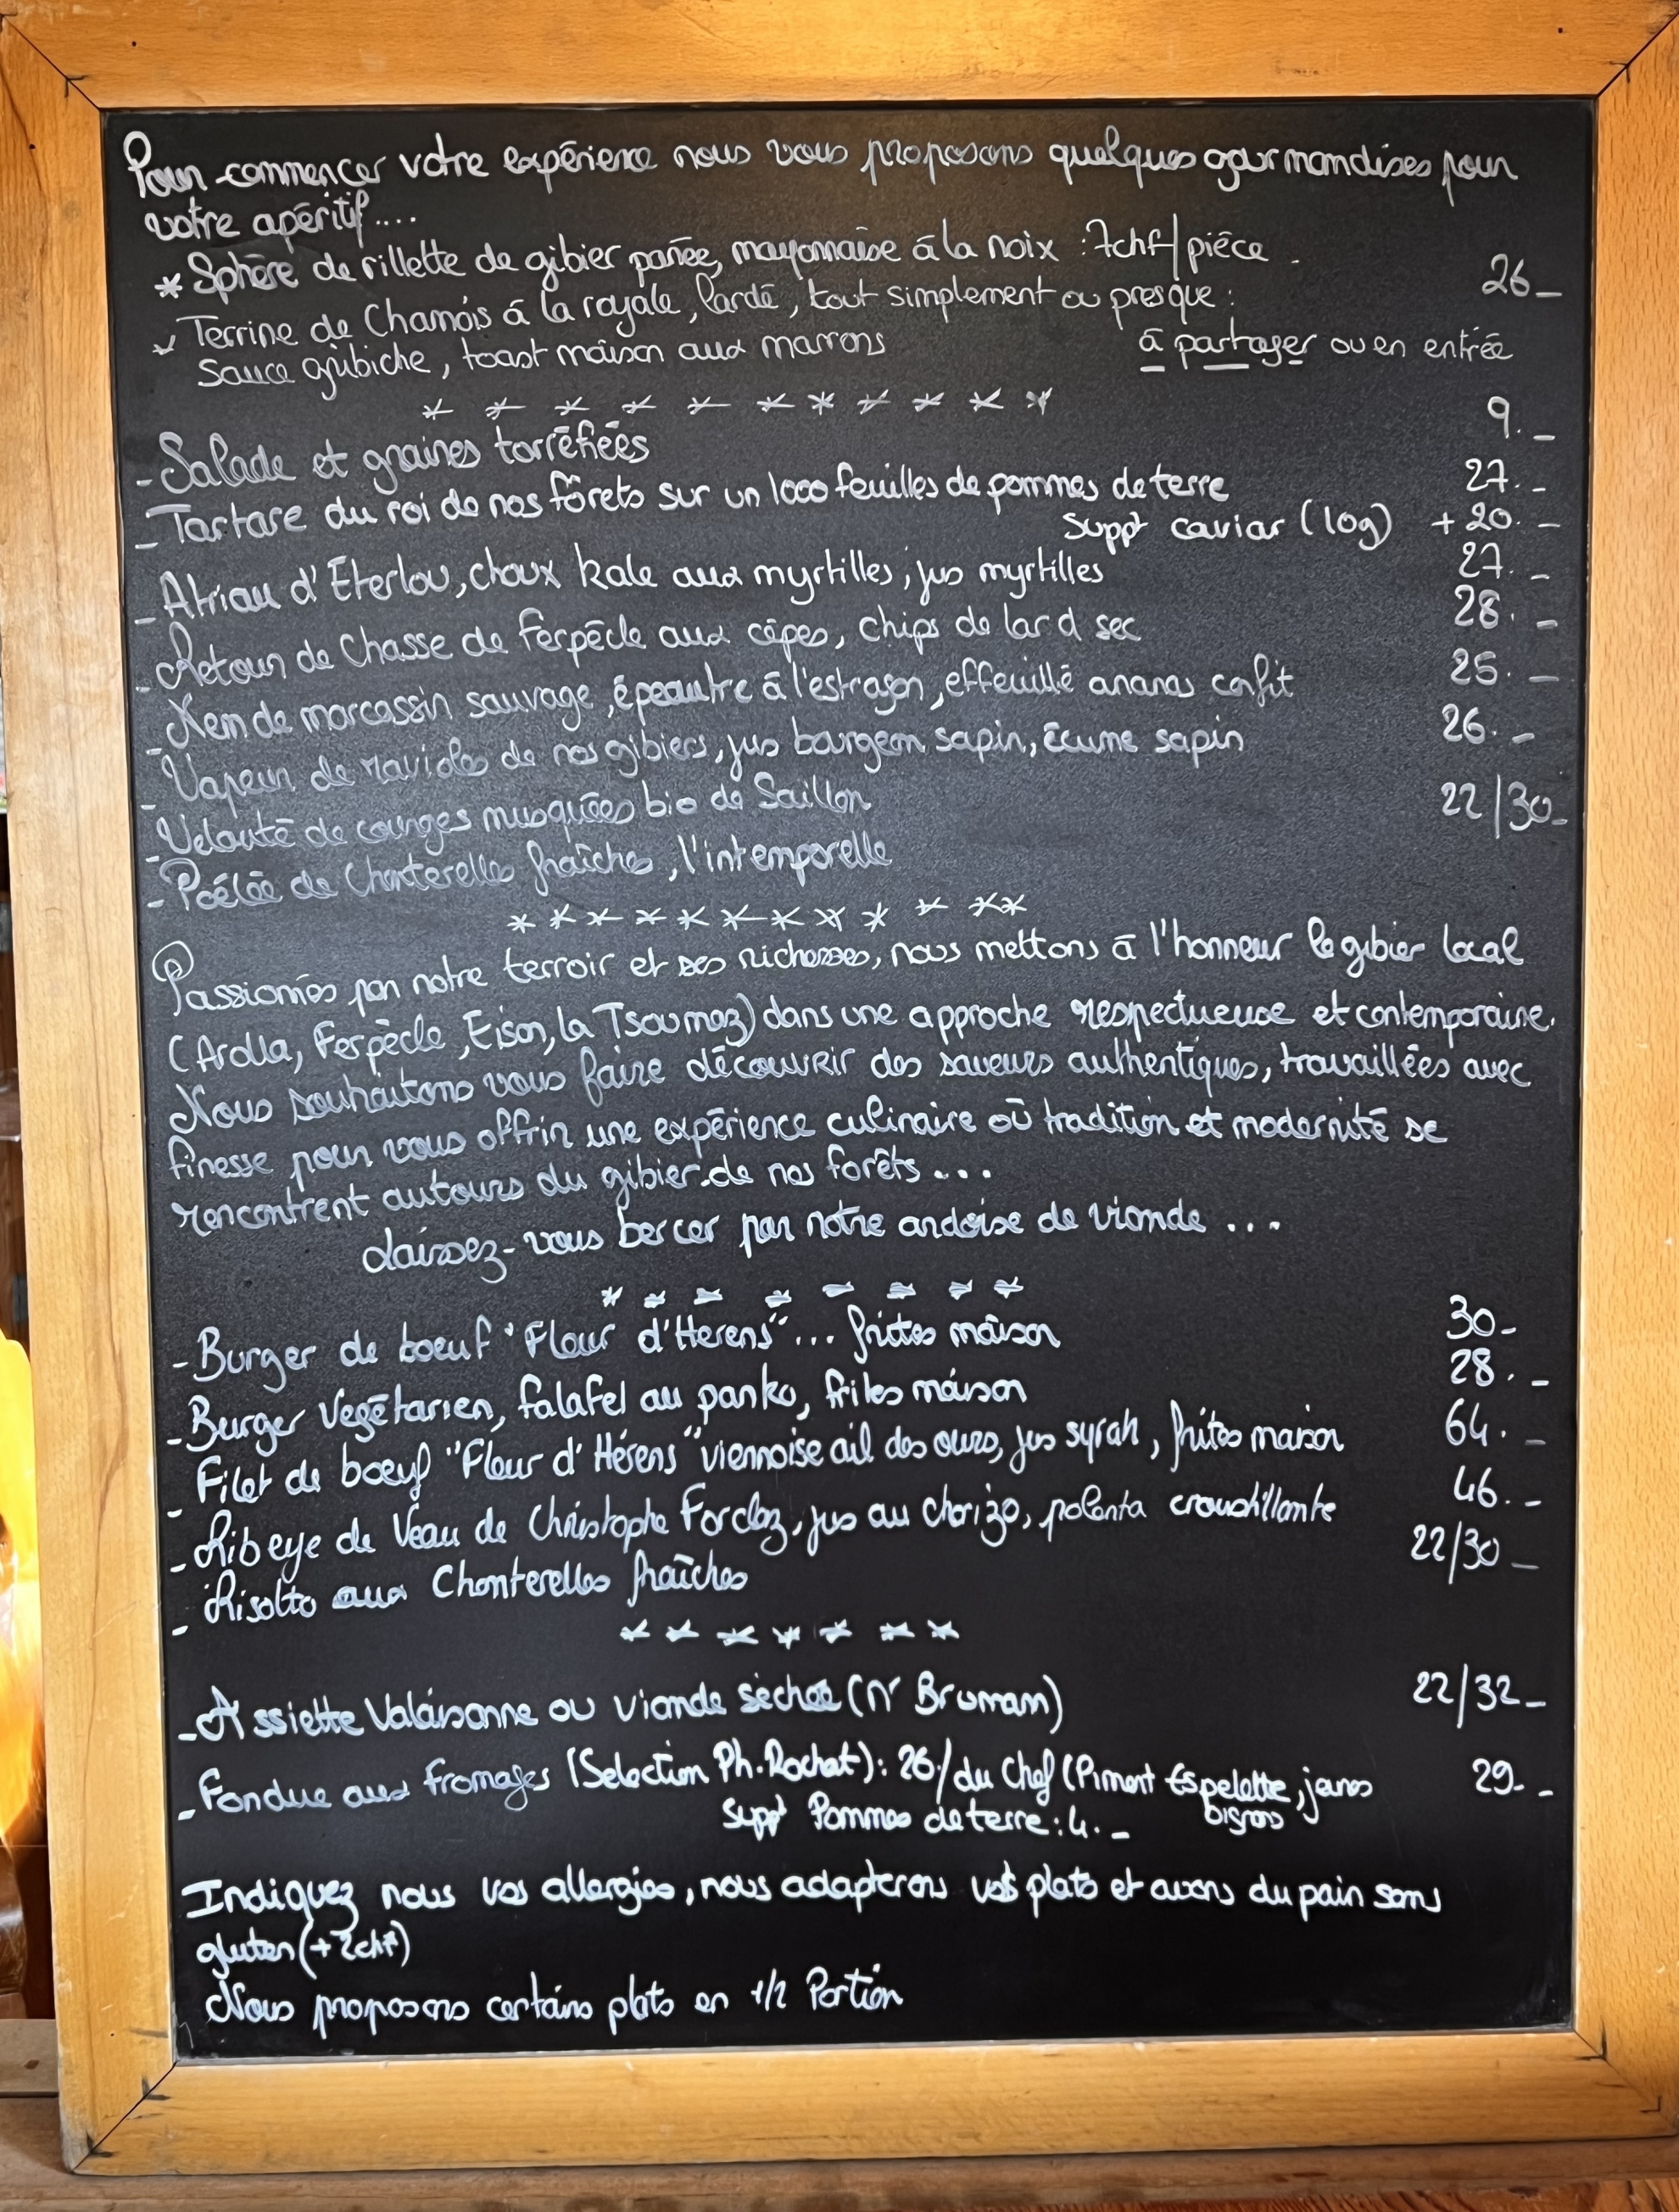 Pour commencer votre expérience nous vous proposons quelques gourmandises pour
votre apéritif....
* Sphère de rillette de gibier panée, mayonnaise à la noix : 7chf/pièce.
* Terrine de Chamois à la royale, lardé, tout simplement ou presque : 26_
Sauce gribiche, toast maison aux marrons à partager ou en entrée
* * * * * * * * * * *
- Salade et graines torréfiées 9._
- Tartare du roi de nos fôrets sur un 1000 feuilles de pommes de terre 27._
Suppt caviar (10g) + 20._
- Atriau d'Eterlou, choux kale aux myrtilles, jus myrtilles 27._
- Retour de Chasse de Ferpècle aux cèpes, chips de lard sec 28._
- Nem de marcassin sauvage, épeautre à l'estragon, effeuillé ananas confit 25._
- Vapeur de ravioles de nos gibiers, jus bourgeon sapin, écume sapin 26._
- Velouté de courges musquées bio de Saillon
- Poêlée de Chanterelles fraîches, l'intemporelle 22/30_
* * * * * * * * * * * *
Passionnés par notre terroir et ses richesses, nous mettons à l'honneur le gibier local
(Arolla, Ferpècle, Eison, la Tsoumaz) dans une approche respectueuse et contemporaine.
Nous souhaitons vous faire découvrir des saveurs authentiques, travaillées avec
finesse pour vous offrir une expérience culinaire où tradition et modernité se
rencontrent autours du gibier de nos forêts...
Laissez-vous bercer par notre ardoise de viande...
* * * * * * * *
- Burger de boeuf "Fleur d'Herens"... frites maison 30_
- Burger Végétarien, falafel au panko, frites maison 28._
- Filet de boeuf "Fleur d'Hérens" viennoise ail des ours, jus syrah, frites maison 64._
- Ribeye de Veau de Christophe Forclaz, jus au chorizo, polenta croustillante 46._
- Risotto aux Chanterelles fraîches 22/30_
* * * * * * *
- Assiette Valaisanne ou viande sechée (Mr Brumann) 22/32_
- Fondue aux fromages (Selection Ph. Rochat): 26./ du Chef (Piment Espelette, jeunes 29._
Suppt Pommes de terre : 4._
Indiquez nous vos allergies, nous adapterons vos plats et avons du pain sans
gluten (+2chf)
Nous proposons certains plats en 1/2 Portion